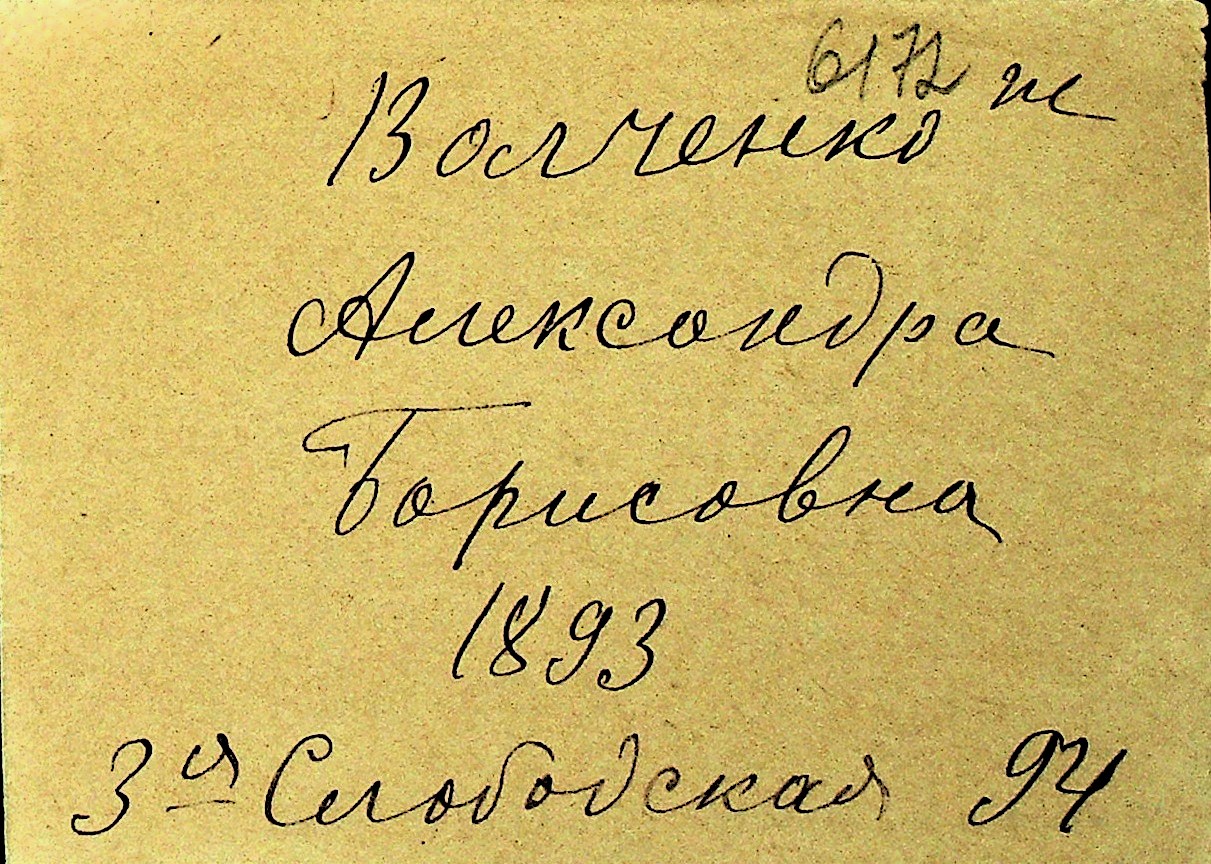 6172 ж
Волченко
Александра
Борисовна
1893
3ья Слободская 94